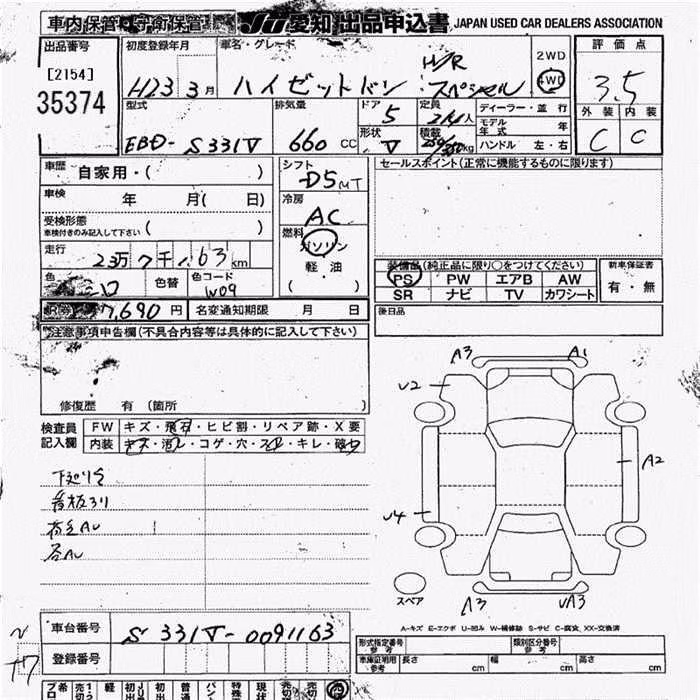 車内保管・守衛保管 JU 愛知 出品申込書 JAPAN USED CAR DEALERS ASSOCIATION
出品番号 初度登録年月 車名・グレード 評価点
[2154] H23 3月 ハイゼットトバン W/R スペシャル 2WD 4WD 3.5
35374
型式 排気量 ドア 5 定員 2/4人 ディーラー・並行 外装 内装
EBD-S331V 660cc 形状 V 積載 250/350kg モデル年式 年 C C
ハンドル 左・右
車歴 自家用・( ) シフト セールスポイント(正常に機能するものに限ります)
車検 年 月( 日) D5MT
受検形態 冷房
車検付きのみ記入して下さい ( ) AC
走行 燃料
2万7千,63km ガソリン 装備品(純正品に限り○をつけてください) 新車保証書
色 色替 色コード 軽・油 PS PW エアB AW 有・無
シロ W09 ( ) SR ナビ TV カワシート
R券 7,690円 名変通知期限 月 日 後日品
注意事項申告欄(不具合内容等は具体的に記入して下さい)
A3 A1
U2
修復歴 有 (箇所 )
検査員 FW キズ・飛石・ヒビ割・リペア跡・X要
記入欄 内装 キズ・汚レ・コゲ・穴・スレ・キレ・破レ
A2
下廻りサ
看板跡
各AU
U4
スペア A3 UA3
A-キズ E-エクボ U-凹み W-補修跡 S-サビ C-腐食 XX-交換済
車台番号 S331V-0091163
登録番号
型式指定番号 類別区分番号
車庫証明用参考 長さ cm 幅 cm 高さ cm